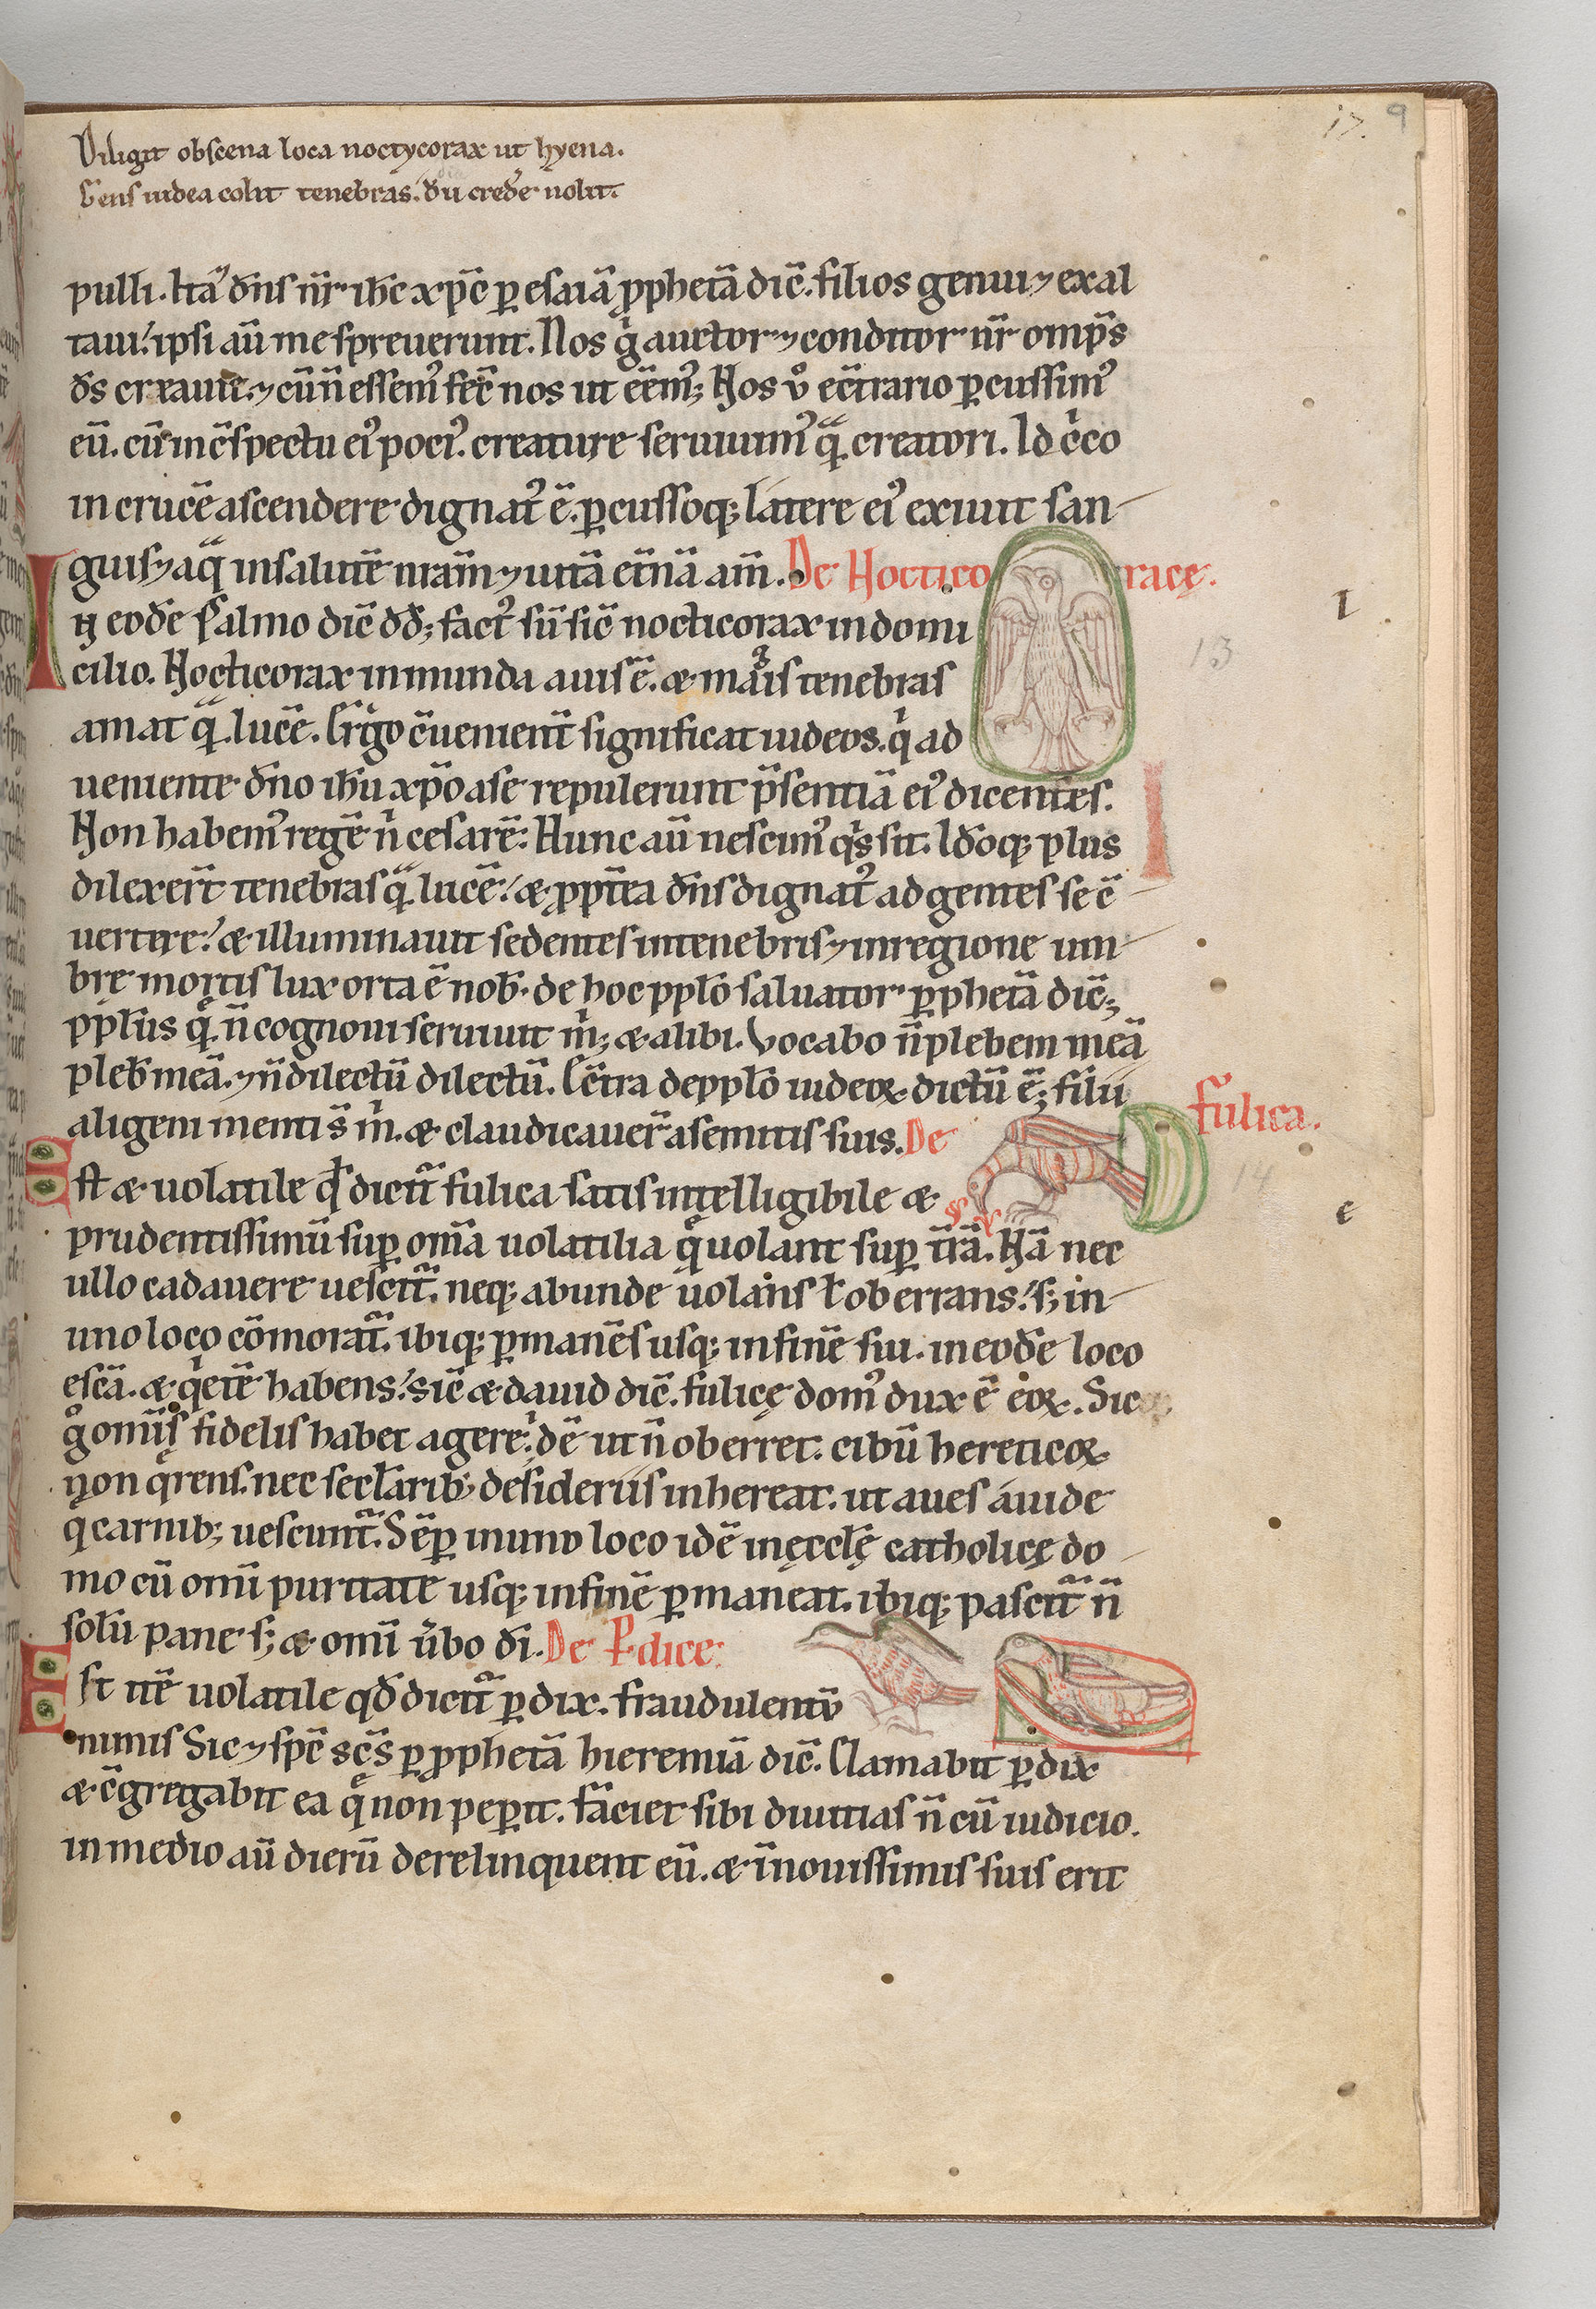 17. 9
Diligit obscena loca noctycorax ut hyena.
Gens iudea colit tenebras. dū credẽ nolit.
pulli. Ita ꝰ dn̄s nr̄ ih̄c xp̄c ꝑ esaiā ꝓphetā dic̄. filios genui ⁊ exal
taui. ipsi aū me spreuerunt. Nos gͥ auctor ⁊ conditor nr̄ omp̄s
ds̄ creauit. ⁊ cū n̄ essemꝰ fec̄ nos ut eēmꝰ; Nos v̊ ec̄trario ꝑcussimꝰ
eū. cū in c̄spectu eiꝰ pociꝰ. creature seruiuimꝰ q̄ creatori. Idcͥco
in crucē ascendere dignatꝰ ē. ꝑcussoq; latere eiꝰ exiuit san
guis ⁊ aqͣ in salutē nrām ⁊ uitā et̄nā am̄. De Nocticoracę.
I
N eodē psalmo dic̄ dd̄; factꝰ sū sic̄ nocticorax in domi
cilio. Nocticorax inmunda auis ē. & magͥs tenebras
amat qͣ lucē. Ergo c̄uenient̄ significat iudeos. qͥ ad
ueniente dn̄o ih̄u xp̄o a se repulerunt p̄sentiā eiꝰ dicentes.
Non habemꝰ regē nͥ cesarē: Hunc aū nescimꝰ qͥs sit. Idoq; plus
dilexer̄t tenebras qͣ lucē. & ꝓpt̄ea dn̄s dignatꝰ ad gentes se c̄
uertere. & illuminauit sedentes in tenebris ⁊ in regione um
bre mortis lux orta ē nob̄. de hoc pplo̅ saluator ꝑ phetā dic̄;
ppl̄us qͤ n̄ cognoui seruiuit mͥ; & alibi. Vocabo n̄ plebem meā
pleb̄ meā. ⁊ n̄ dilectū dilectū. Cc̄tra de pplo̅ iudeoꝝ dictū ē; filii
aligeni mentiī s̄ mͥ. & claudicauer̄ a semitis suis. De fulica.
e
Est & uolatile qd̄ dicit᷑ fulica satis intelligibile &
prudentissimū suꝑ om̄a uolatilia qͤ uolant suꝑ t̄rā. Nā nec
ullo cadauere uescit᷑. neq; abunde uolans ł oberrans. s; in
uno loco cōmorat᷑. ibiq; ꝑmanēs usq; in finē sui. in eodē loco
escā. & qͥetē habens. sic̄ & dauid dic̄. fulicę domꝰ dux ē eoꝝ. Sic
g̊ omīs fidelis habet agere. idē ut n̄ oberret. cibū hereticoꝝ
non qͥrens. nec secl̄arib; desideriis inhereat. ut aues auide
q carnib; uescunt᷑. Sēꝑ in uno loco idē in ęccl̄ę catholicę do
mo cū omī puritate usq; in finē ꝑmaneat. ibiq; pascit᷑ n̄
solū pane s; & omī u̅bo di̅. De Pdice:
Est itē uolatile qd̄ dicit᷑ ꝑdix. fraudulentū
nimis Sic ⁊ sp̄c sc̄s ꝑ ꝓphetā hieremiā dic̄. Clamabit ꝑdix
& c̄gregabit ea qͤ non peꝑit. faciet sibi diuitias n̄ cū iudicio.
in medio aū dierū derelinquent eū. & ī nouissimis suis erit
13
14